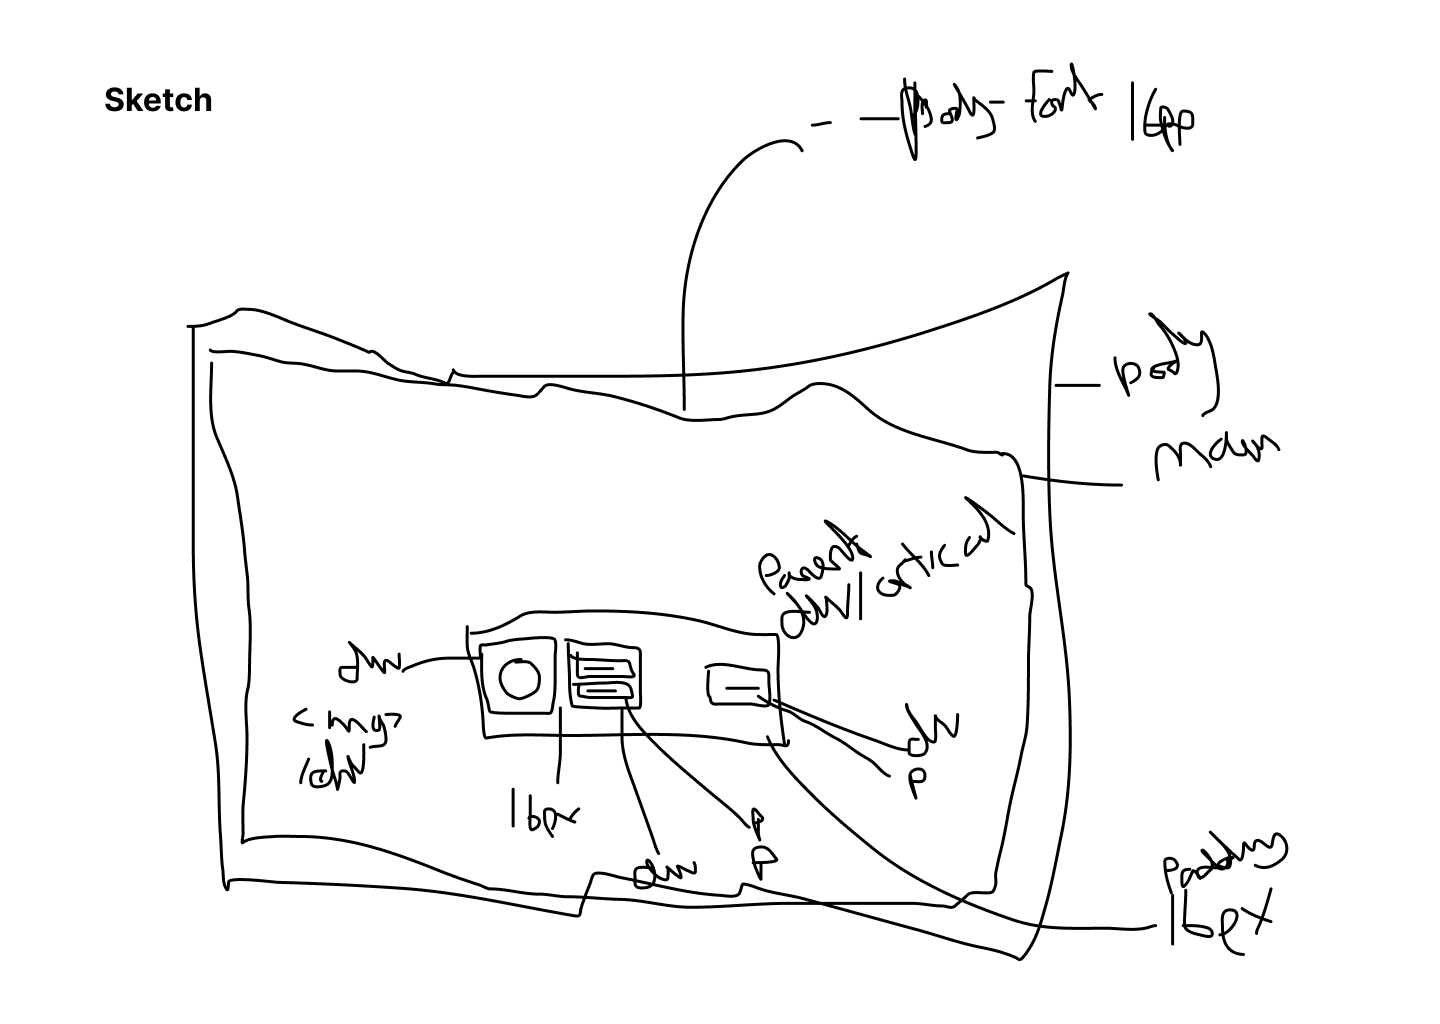 Sketch
Body - Font 16px
body
main
Parent
div/artical
div
<img>
/div
16px
div
P
P
div
P
Padding
16px